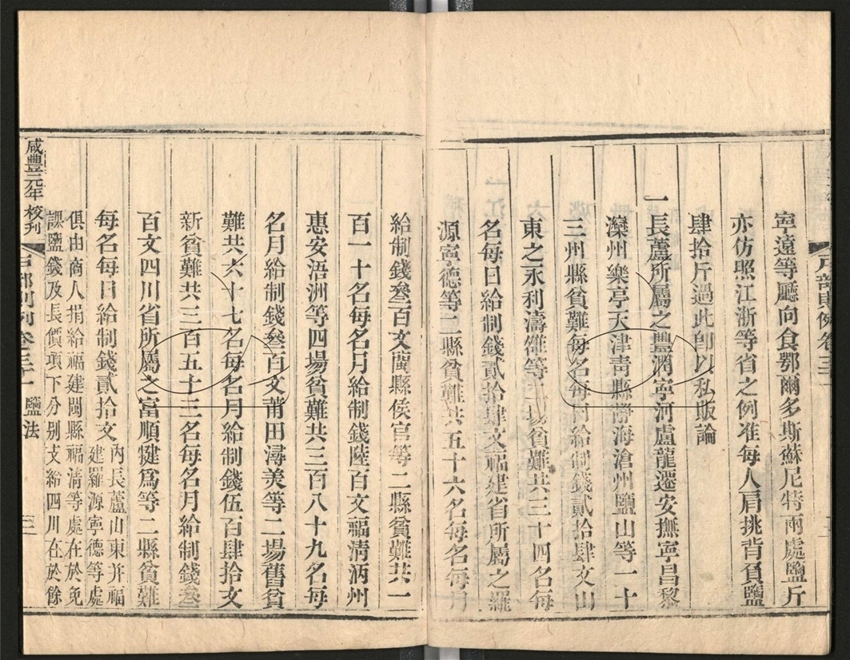 寧遠等廳向食鄂爾多斯蘇尼特兩處鹽斤
亦仿照江浙等省之例准每人肩挑背負鹽
肆拾斤過此卽以私販論
一長蘆所屬之豐潤寧河盧龍遷安撫寧昌黎
灤州樂亭天津靑縣靜海滄州鹽山等一十
三州縣貧難每名每日給制錢貳拾肆文山
東之永利濤雒等二場貧難共三十四名每
名每日給制錢貳拾肆文福建省所屬之羅
源寧德等二縣貧難共五十六名每名每月
給制錢叄百文閩縣侯官等二縣貧難共一
百一十名每名月給制錢陸百文福淸㳽州
惠安浯洲等四場貧難共三百八十九名每
名月給制錢叄百文莆田潯美等二場舊貧
難共六十七名每名月給制錢伍百肆拾文
新貧難共三百五十三名每名月給制錢叄
百文四川省所屬之富順犍爲等二縣貧難
每名每日給制錢貳拾文
內長蘆山東并福
建羅源寧德等處
俱由商人捐給福建閩縣福淸等處在於免
課鹽錢及長價項下分別支給四川在於餘
咸豐元年校刋
戶部則例卷三十一
鹽法
三
戶部則例卷三十一